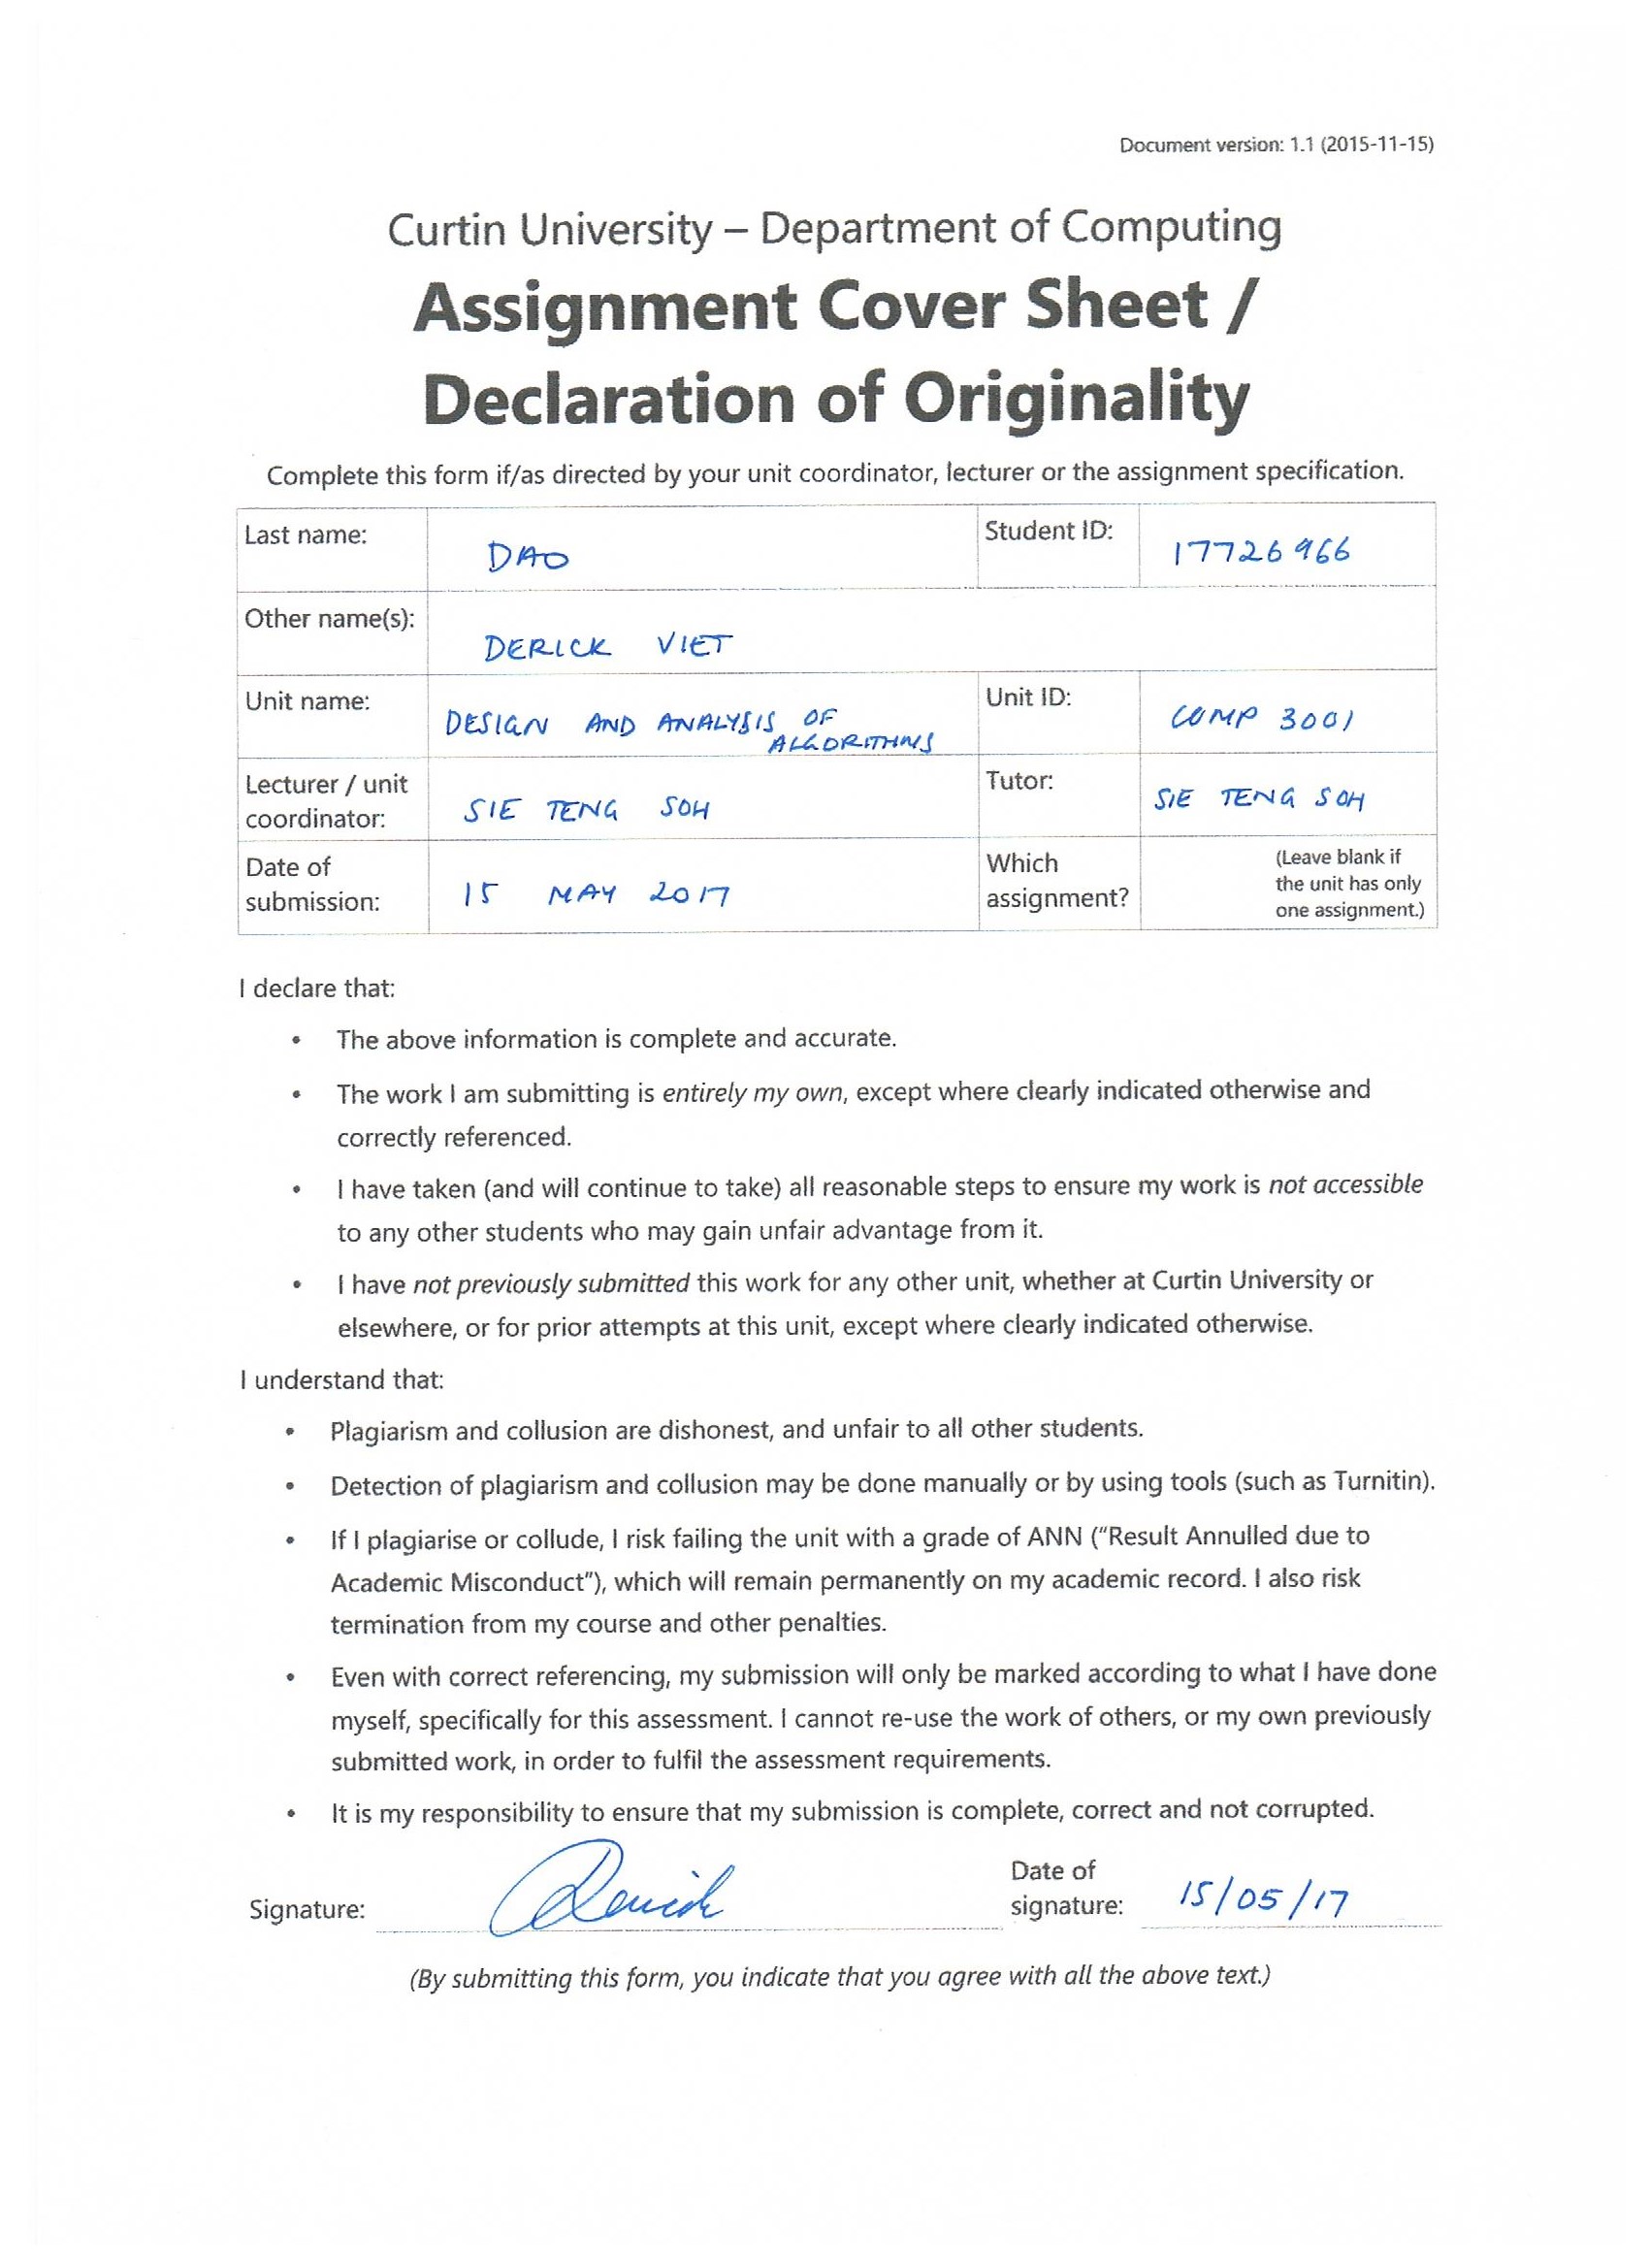 Document version: 1.1 (2015-11-15)
Curtin University – Department of Computing
Assignment Cover Sheet /
Declaration of Originality
Complete this form if/as directed by your unit coordinator, lecturer or the assignment specification.
Last name: DAO Student ID: 17726966
Other name(s): DERICK VIET
Unit name: DESIGN AND ANALYSIS OF Unit ID: COMP 3001
ALGORITHMS
Lecturer / unit Tutor:
coordinator: SIE TENG SOH SIE TENG SOH
Date of Which (Leave blank if
submission: 15 MAY 2017 assignment? the unit has only
one assignment.)
I declare that:
• The above information is complete and accurate.
• The work I am submitting is entirely my own, except where clearly indicated otherwise and
correctly referenced.
• I have taken (and will continue to take) all reasonable steps to ensure my work is not accessible
to any other students who may gain unfair advantage from it.
• I have not previously submitted this work for any other unit, whether at Curtin University or
elsewhere, or for prior attempts at this unit, except where clearly indicated otherwise.
I understand that:
• Plagiarism and collusion are dishonest, and unfair to all other students.
• Detection of plagiarism and collusion may be done manually or by using tools (such as Turnitin).
• If I plagiarise or collude, I risk failing the unit with a grade of ANN (“Result Annulled due to
Academic Misconduct”), which will remain permanently on my academic record. I also risk
termination from my course and other penalties.
• Even with correct referencing, my submission will only be marked according to what I have done
myself, specifically for this assessment. I cannot re-use the work of others, or my own previously
submitted work, in order to fulfil the assessment requirements.
• It is my responsibility to ensure that my submission is complete, correct and not corrupted.
Date of
Signature: Derick signature: 15/05/17
(By submitting this form, you indicate that you agree with all the above text.)